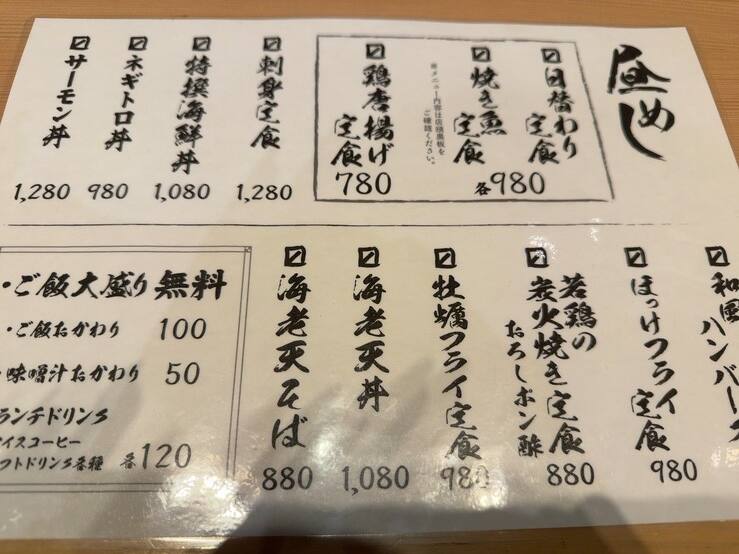 昼めし
日替わり定食
焼き魚定食
各980
※メニュー内容は店頭黒板を
ご確認ください。
鶏唐揚げ定食
780
刺身定食
1,280
特撰海鮮丼
1,080
ネギトロ丼
980
サーモン丼
1,280
和風ハンバーグ
ほっけフライ定食
980
若鶏の
炭火焼き定食
おろしポン酢
880
牡蠣フライ定食
980
海老天丼
1,080
海老天そば
880
・ご飯大盛り 無料
・ご飯おかわり 100
・味噌汁おかわり 50
ランチドリンク
アイスコーヒー
ソフトドリンク各種 各120